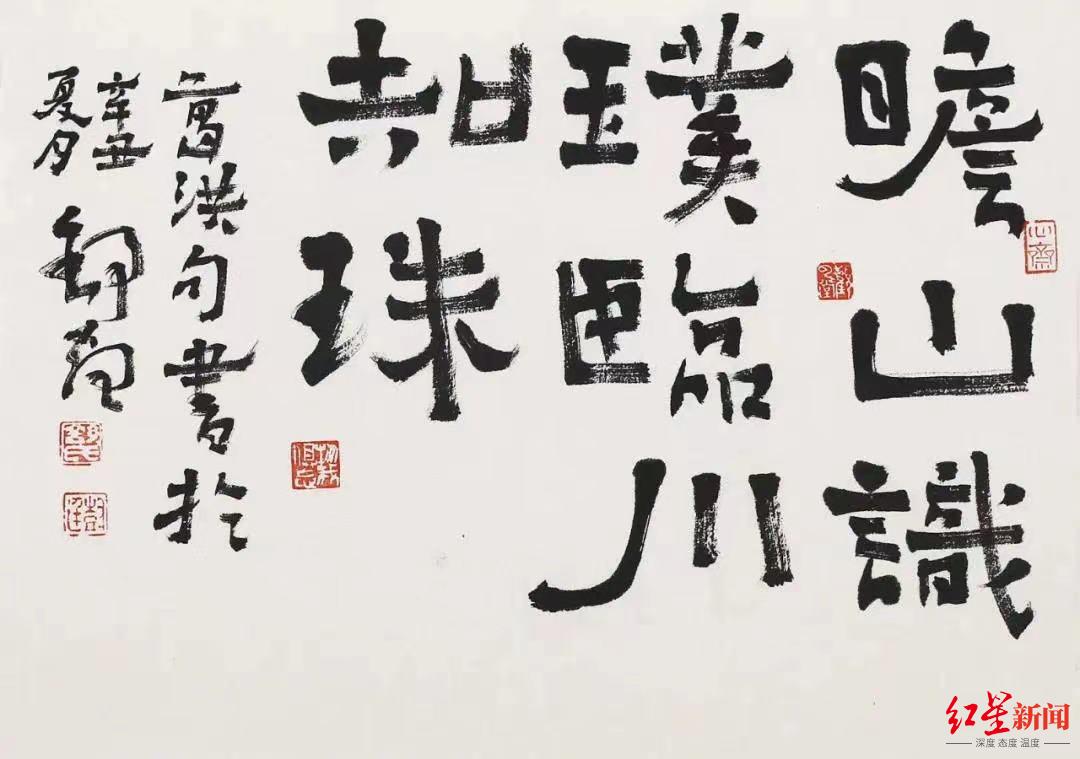 瞻山識
璞臨川
知珠
葛洪句書於
辛丑
夏月
心齋
红星新闻
深度 态度 温度